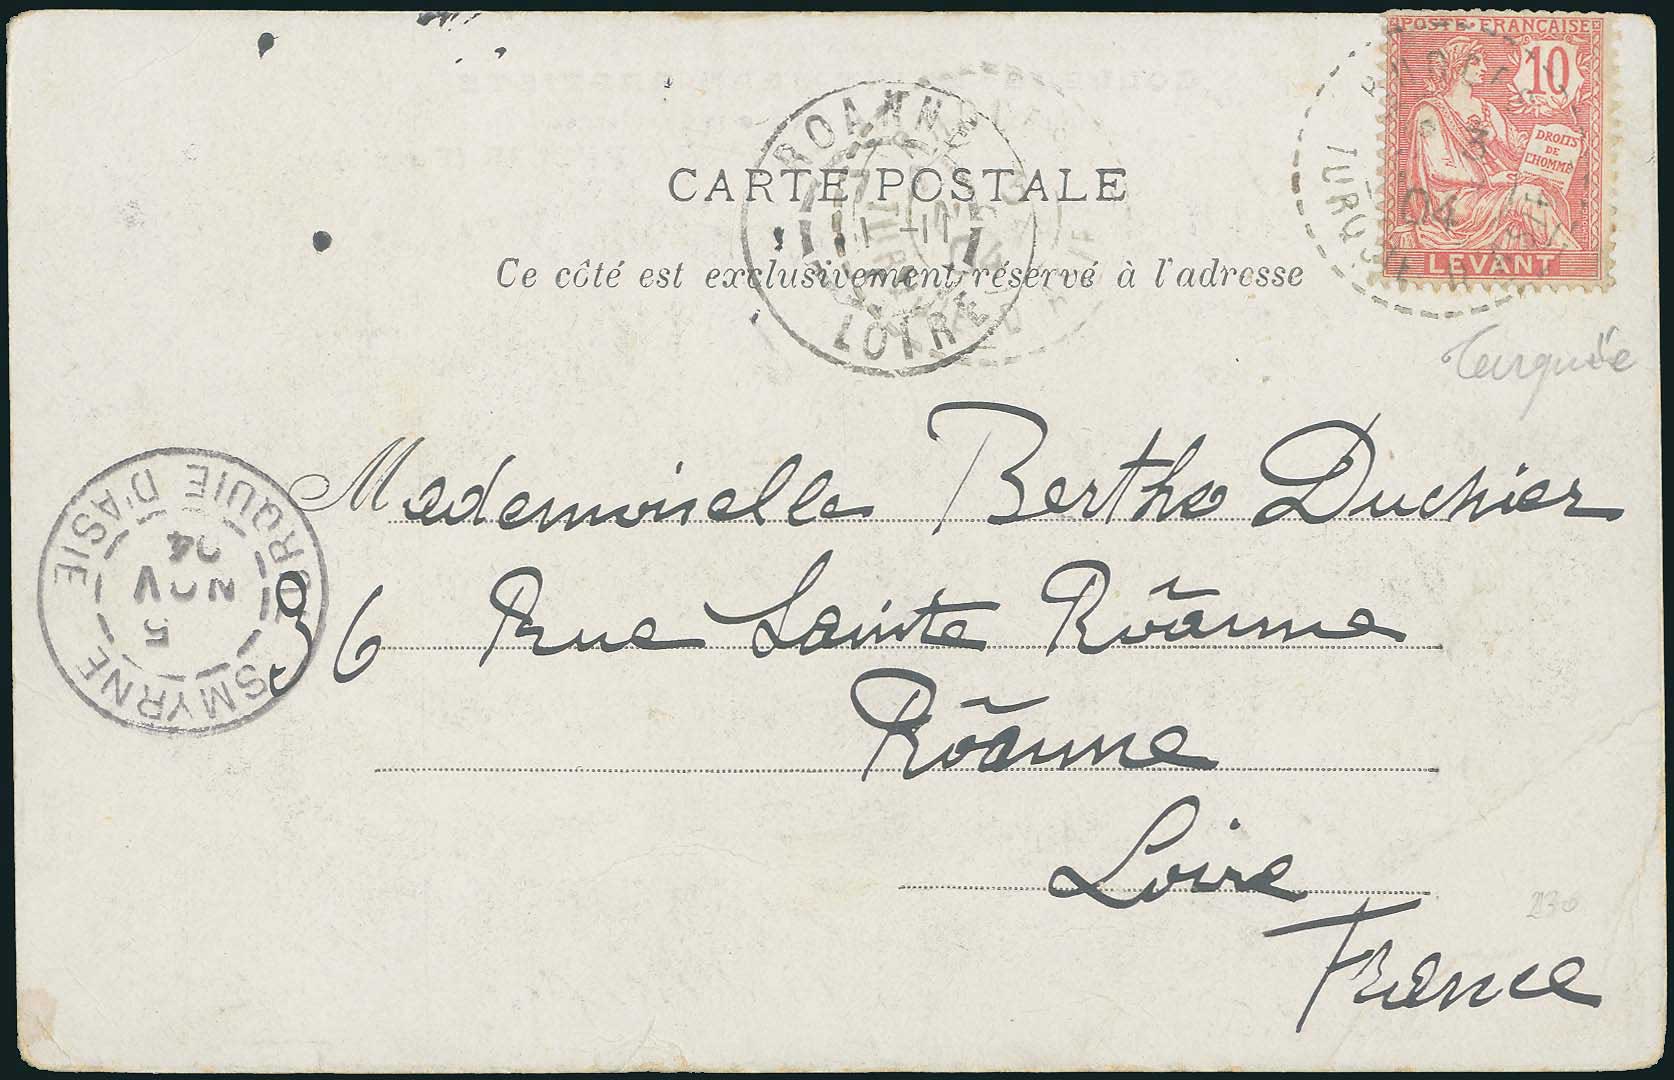 POSTE FRANÇAISE
10
DROITS
DE
L'HOMME
LEVANT
04
TURQUIE
ROANNE
LOIRE
CARTE POSTALE
Ce côté est exclusivement réservé à l'adresse
Turquie
SMYRNE
TURQUIE D'ASIE
5
NOV
04
Mademoiselle Berthe Duchier
36 Rue Sainte Rōanne
Rōanne
Loire
France
230